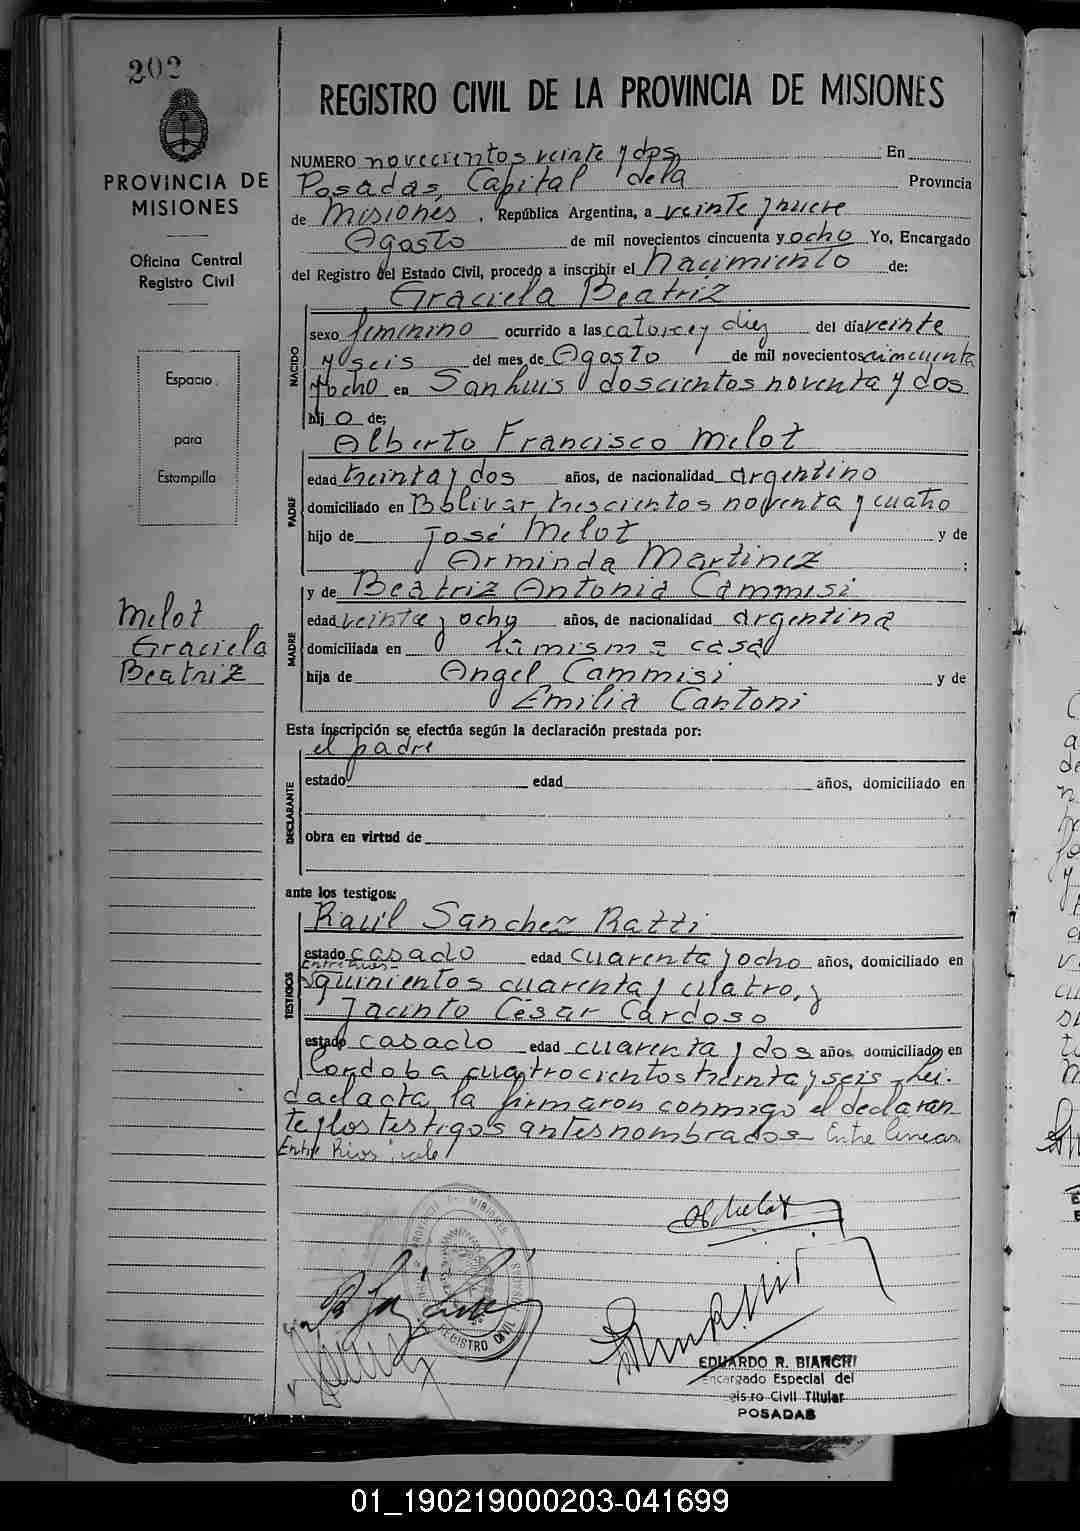 202
PROVINCIA DE
MISIONES
Oficina Central
Registro Civil
Espacio
para
Estampilla
Melot
Graciela
Beatriz
REGISTRO CIVIL DE LA PROVINCIA DE MISIONES
NUMERO novecientos veinte y dos En
Posadas, Capital de la Provincia
de Misiones, República Argentina, a veinte y nueve
Agosto de mil novecientos cincuenta y ocho Yo, Encargado
del Registro del Estado Civil, procedo a inscribir el Nacimiento de:
Graciela Beatriz
NACIDO
sexo femenino ocurrido a las catorce y diez del día veinte
y seis del mes de Agosto de mil novecientos cincuenta
y ocho en San Luis doscientos noventa y dos
hij o de;
Alberto Francisco Melot
PADRE
edad treinta y dos años, de nacionalidad argentino
domiciliado en Bolivar trescientos noventa y cuatro
hijo de José Melot y de
Arminda Martinez ;
y de Beatriz Antonia Cammisi
MADRE
edad veinte y ocho años, de nacionalidad argentina
domiciliada en la misma casa
hija de Angel Cammisi y de
Emilia Cantoni
Esta inscripción se efectúa según la declaración prestada por:
el padre
DECLARANTE
estado edad años, domiciliado en
obra en virtud de
ante los testigos:
Raúl Sanchez Ratti
TESTIGOS
estado casado edad cuarenta y ocho años, domiciliado en
Entre Rios
quinientos cuarenta y cuatro, y
Jacinto César Cardoso
estado casado edad cuarenta y dos años, domiciliado en
Cordoba cuatrocientos treinta y seis Lei-
da el acta, la firmaron conmigo el declaran
te y los testigos antes nombrados- Entre lineas
Entre Rios: vale
REGISTRO CIVIL
EDUARDO R. BIANCHI
Encargado Especial del
gistro Civil Titular
POSADAS
01_190219000203-041699